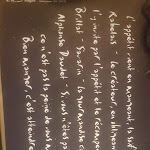 L'appétit vient en mangeant, la soif
Rabelais - Le créateur, en obligeant
l'y invite par l'appétit et le récompense
Brillat-Savarin - La gourmandise
Alphonse Daudet - Si vous n'êtes pas
ce n'est pas la peine de vous
Bien manger, c'est atteindre